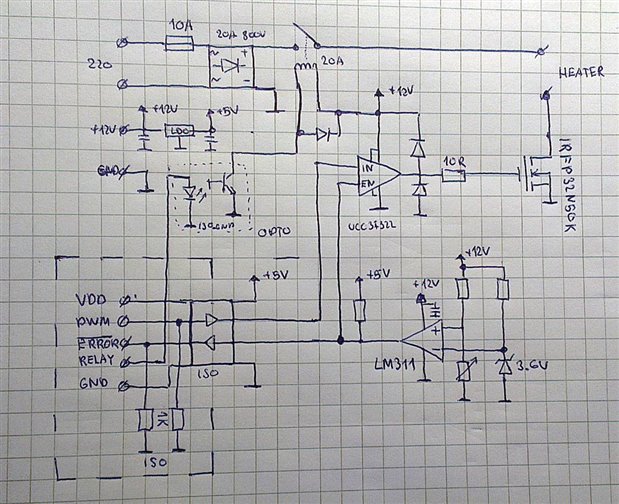 10A
20A 800V
220
~
+
~
-
20A
HEATER
+12V
+5V
+12V
LDO
+12V
GND
IN
EN
UCC37322
10R
IRFP32N50K
OPTO
+5V
+5V
+12V
+12V
VDD
PWM
ERROR
RELAY
GND
ISO
LM311
+
-
3.6V
1K
ISO